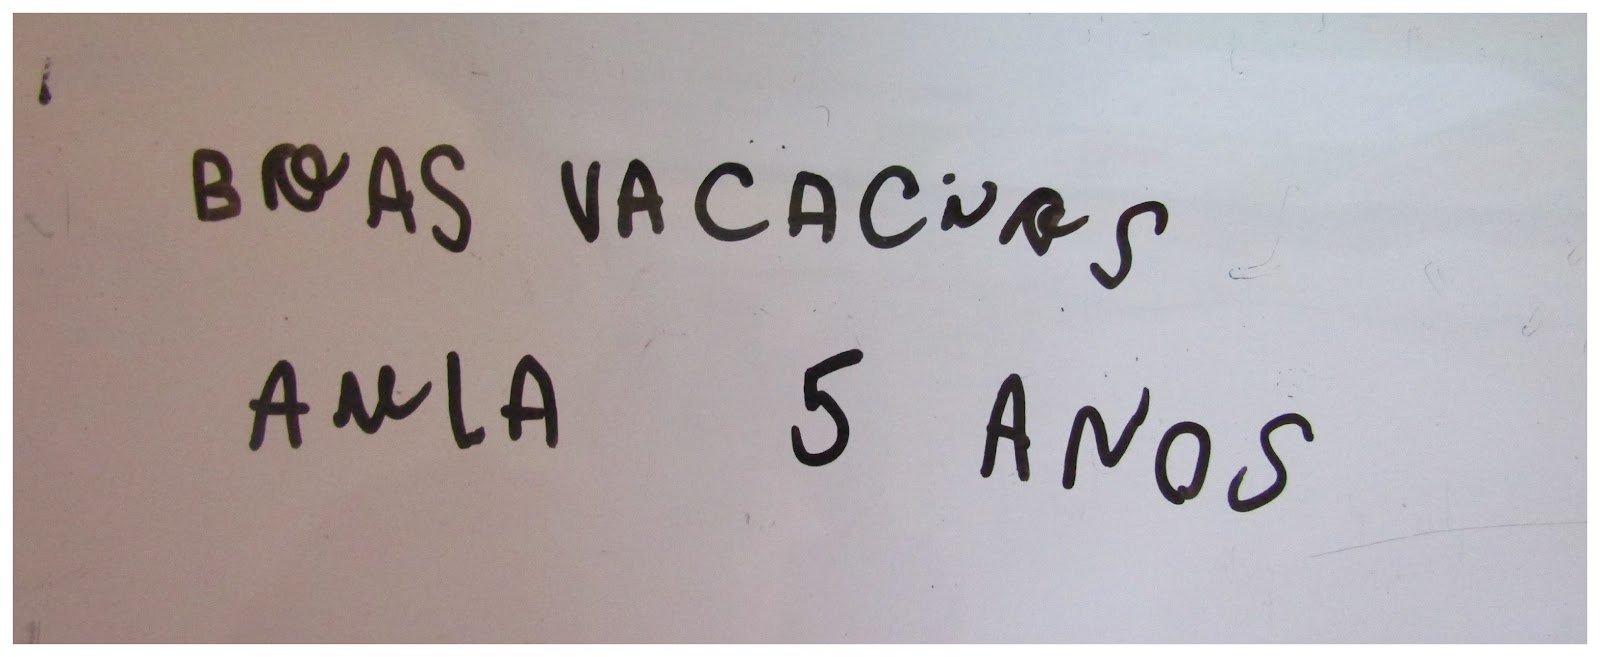 BOAS VACACINOS
AULA 5 ANOS